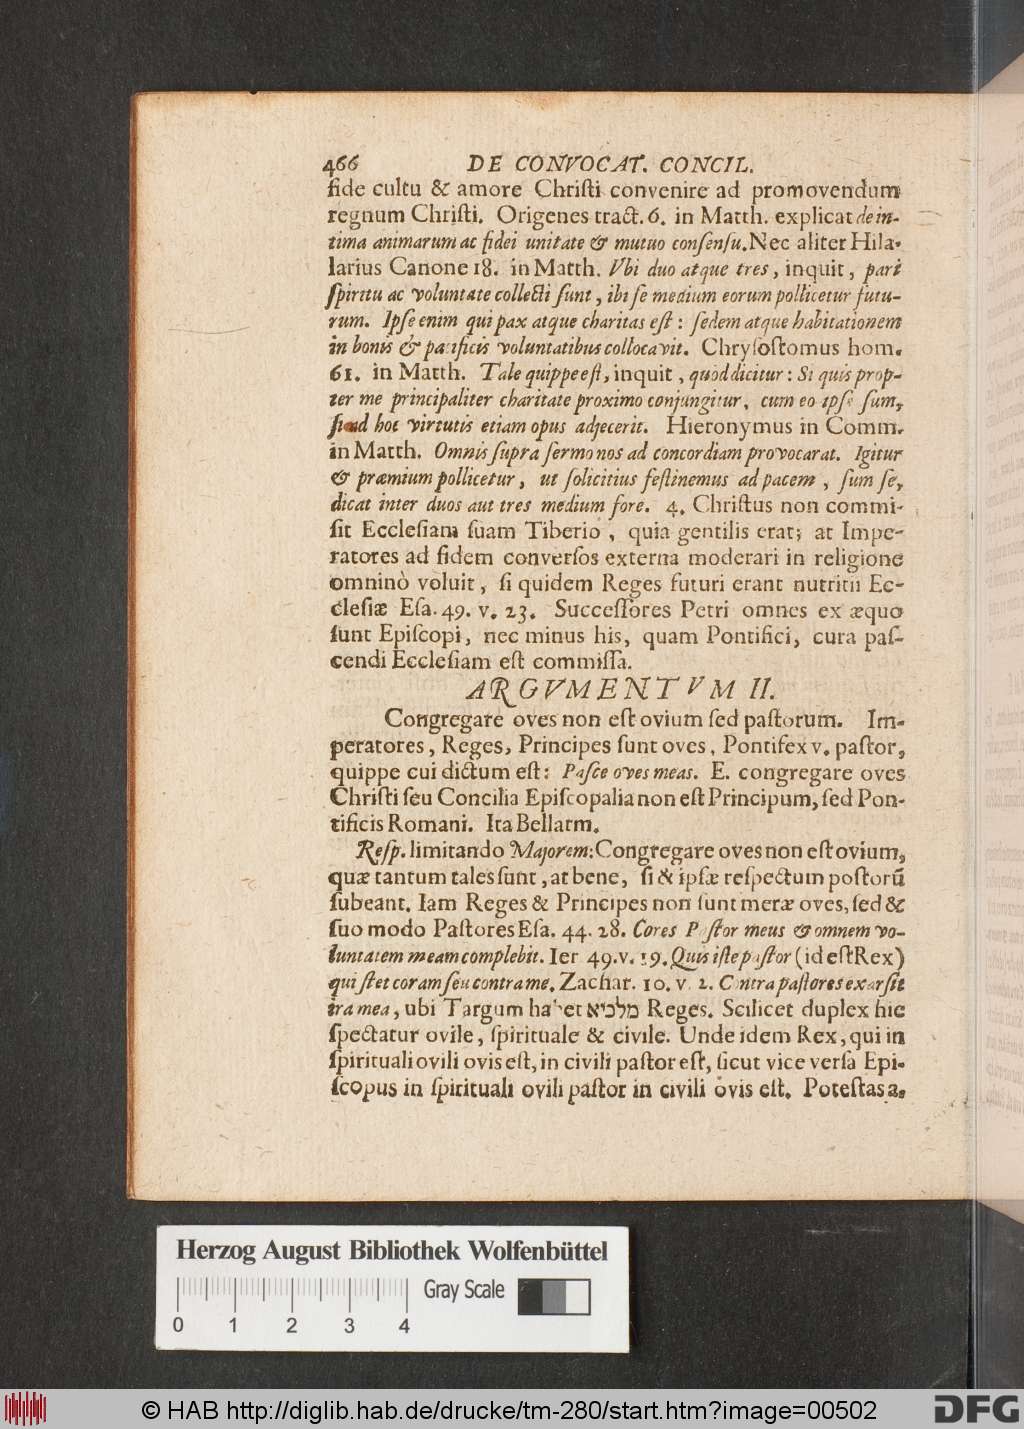 466 DE CONVOCAT. CONCIL.
fide cultu & amore Chriſti convenire ad promovendum
regnum Chriſti. Origenes tract. 6. in Matth. explicat de in-
tima animarum ac fidei unitate & mutuo conſenſu. Nec aliter Hila-
larius Canone 18. in Matth. Vbi duo atque tres, inquit, pari
ſpiritu ac voluntate collecti ſunt, ibi ſe medium eorum pollicetur futu-
rum. Ipſe enim qui pax atque charitas eſt: ſedem atque habitationem
in bonis & pacificis voluntatibus collocavit. Chryſoſtomus hom.
61. in Matth. Tale quippe eſt, inquit, quod dicitur: Si quis prop-
ter me principaliter charitate proximo conjungitur, cum eo ipſe ſum,
hoc virtutis etiam opus adjecerit. Hieronymus in Comm.
in Matth. Omnis ſupra ſermo nos ad concordiam provocarat. Igitur
& præmium pollicetur, ut ſolicitius feſtinemus ad pacem, ſum ſe,
dicat inter duos aut tres medium fore. 4. Chriſtus non commi-
ſit Eccleſiam ſuam Tiberio, quia gentilis erat; at Impe-
ratores ad fidem converſos externa moderari in religione
omninò voluit, ſi quidem Reges futuri erant nutritii Ec-
cleſiæ Eſa. 49. v. 23. Succeſſores Petri omnes ex æquo
ſunt Epiſcopi, nec minus his, quam Pontifici, cura paſ-
cendi Eccleſiam eſt commiſſa.
ARGVMENTVM II.
Congregare oves non eſt ovium ſed paſtorum. Im-
peratores, Reges, Principes ſunt oves, Pontifex v. paſtor,
quippe cui dictum eſt: Paſce oves meas. E. congregare oves
Chriſti ſeu Concilia Epiſcopalia non eſt Principum, ſed Pon-
tificis Romani. Ita Bellarm.
Reſp. limitando Majorem: Congregare oves non eſt ovium,
quæ tantum tales ſunt, at bene, ſi & ipſæ reſpectum poſtorũ
ſubeant. Iam Reges & Principes non ſunt meræ oves, ſed &
ſuo modo Paſtores Eſa. 44. 28. Cores Paſtor meus & omnem vo-
luntatem meam complebit. Ier 49. v. 19. Quis iſte paſtor (id eſt Rex)
qui ſtet coram ſeu contra me. Zachar. 10. v. 2. Contra paſtores exarſit
ira mea, ubi Targum habet מלכיא Reges. Scilicet duplex hic
ſpectatur ovile, ſpirituale & civile. Unde idem Rex, qui in
ſpirituali ovili ovis eſt, in civili paſtor eſt, ſicut vice verſa Epi-
ſcopus in ſpirituali ovili paſtor in civili ovis eſt. Poteſtas a-
Herzog August Bibliothek Wolfenbüttel
Gray Scale
0 1 2 3 4
© HAB http://diglib.hab.de/drucke/tm-280/start.htm?image=00502
DFG